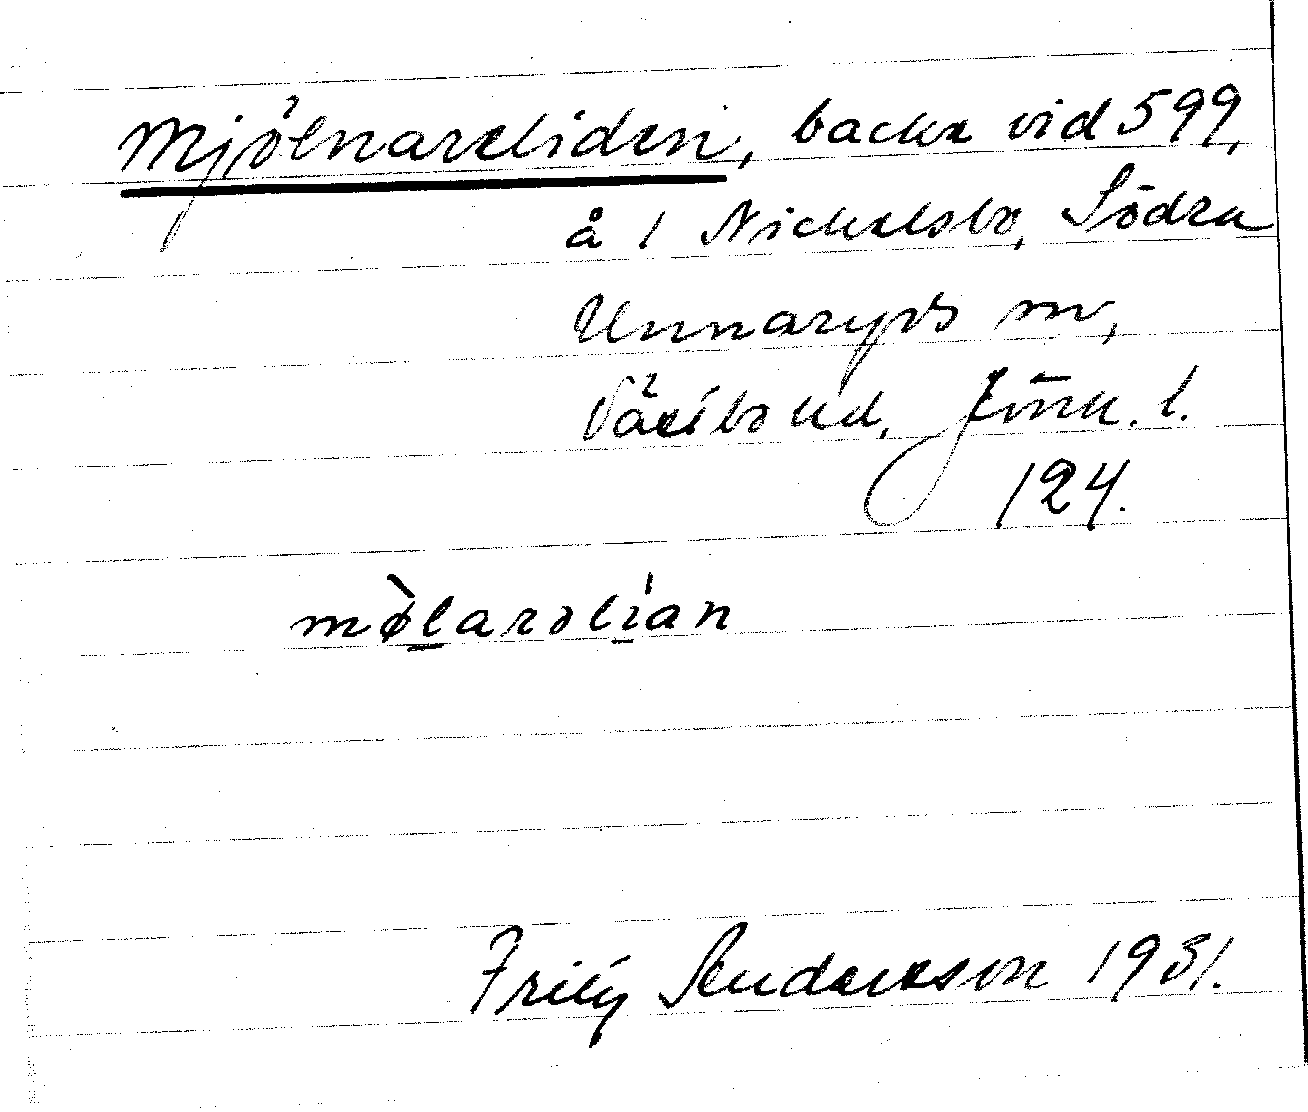 Mjölnareliden, backe vid 599,
å 1 Nickelsbo, Södra
Unnaryds sn,
Västbo hd, Jönk. l.
124.
mølarəlian
Fritz Andersson 1931.